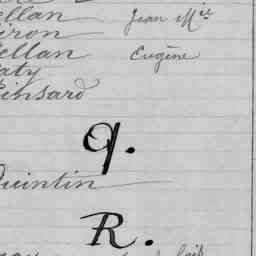 ellan Jean Mie
iron
ellan Eugène
aty
insard
Q.
Quintin
R.